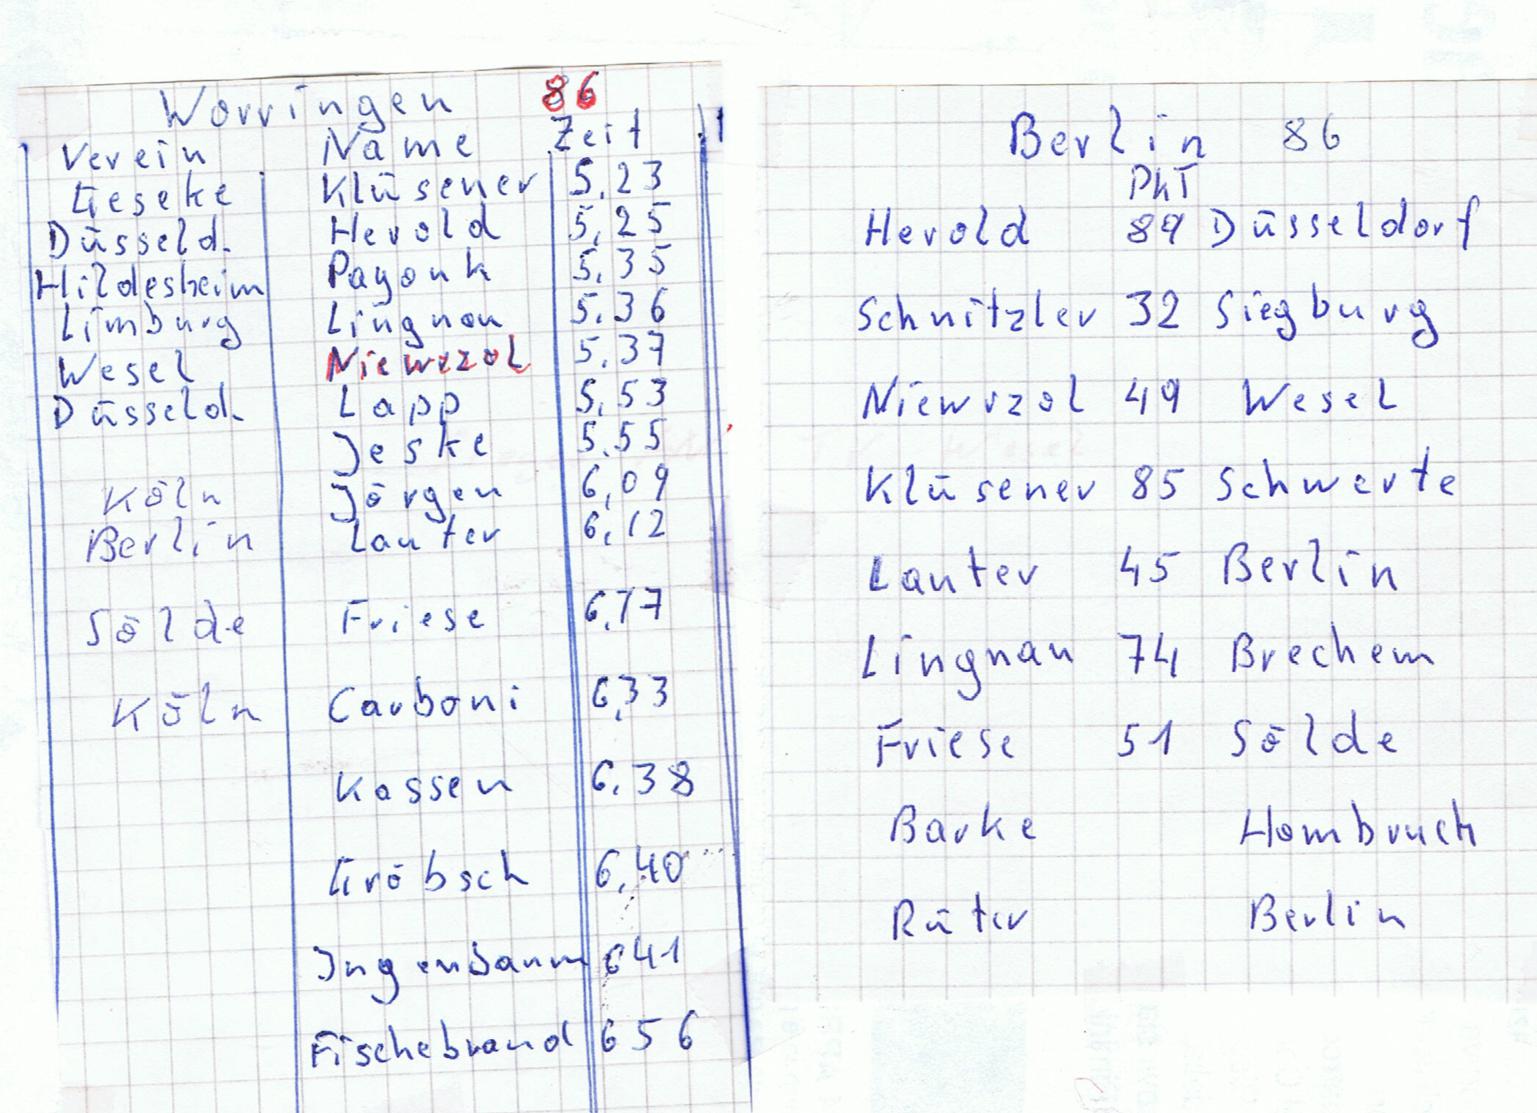 Worringen 86
Verein Name Zeit
Geseke Klüsener 5,23
Düsseld. Herold 5,25
Hildesheim Payonk 5,35
Limburg Lingnau 5,36
Wesel Niewrzol 5,37
Düsseld. Lapp 5,53
Jeske 5,55
Köln Jörgen 6,09
Berlin Lauter 6,12
Sölde Friese 6,17
Köln Carboni 6,33
Kassen 6,38
Gröbsch 6,40
Ingenbaum 641
Fischebrand 656
Berlin 86
PkT
Herold 89 Düsseldorf
Schnitzler 32 Siegburg
Niewrzol 49 Wesel
Klüsener 85 Schwerte
Lauter 45 Berlin
Lingnau 74 Brechem
Friese 51 Sölde
Barke Hombruch
Rüter Berlin